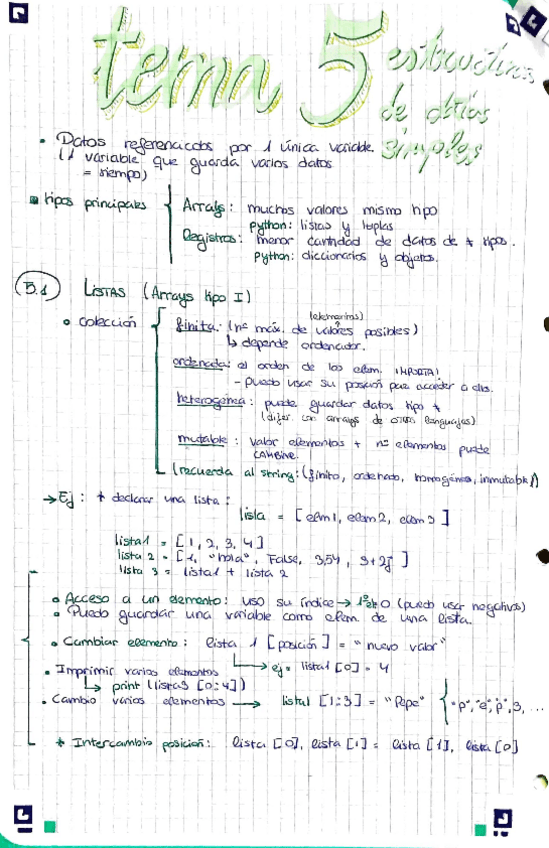 tema 5 estructuras
de datos
simples
• Datos referenciados por 1 única variable.
(1 variable que guarda varios datos
= tiempo)
tipos principales
Arrays: muchos valores mismo tipo
python: listas y tuplas
Registros: menor cantidad de datos de ≠ tipos.
Python: diccionarios y objetos.
5.1 LISTAS (Arrays tipo I)
• colección
(elementos)
finita: (nº máx. de valores posibles)
↳ depende ordenador.
ordenada: el orden de los elem. IMPORTA!
- puedo usar su posición para acceder a ellos.
heterogénea: puede guardar datos tipo ≠
(difer. con arrays de otros lenguajes)
mutable: valor elementos + nº elementos puede
CAMBIAR.
(recuerda al string: (finito, ordenado, homogéneo, inmutable))
→ Ej: + declarar una lista:
lista = [elem1, elem2, elem3]
lista1 = [1, 2, 3, 4]
lista 2 = [1, "hola", False, 3,54, 9+2j]
lista 3 = lista1 + lista 2
• Acceso a un elemento: uso su índice → 1º el = 0 (puedo usar negativos)
• Puedo guardar una variable como elem de una lista.
• Cambiar elemento: lista 1 [posición] = "nuevo valor"
↳ ej = lista1 [0] = 4
• Imprimir varios elementos
↳ print (lista3 [0:4])
• Cambio varios elementos → lista1 [1:3] = "Pepe" { "p", "e", "p", 3, ...
+ Intercambio posición: lista [0], lista [1] = lista [1], lista [0]